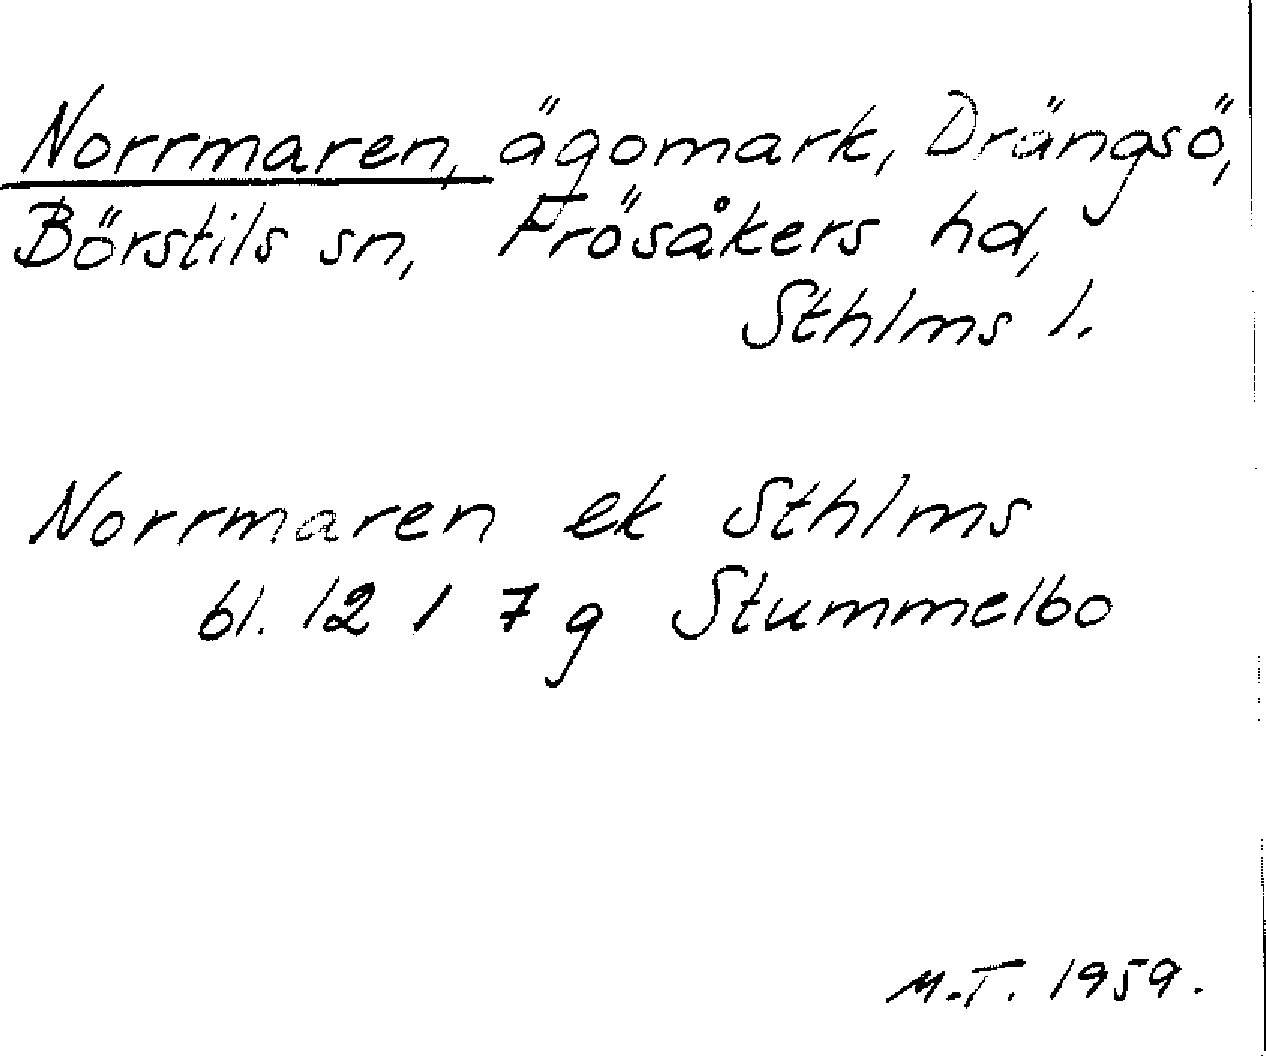 Norrmaren, ägomark, Drängsö,
Börstils sn, Frösåkers hd,
Sthlms l.
Norrmaren ek Sthlms
bl. 12 I 7 g Stummelbo
M.T. 1959.